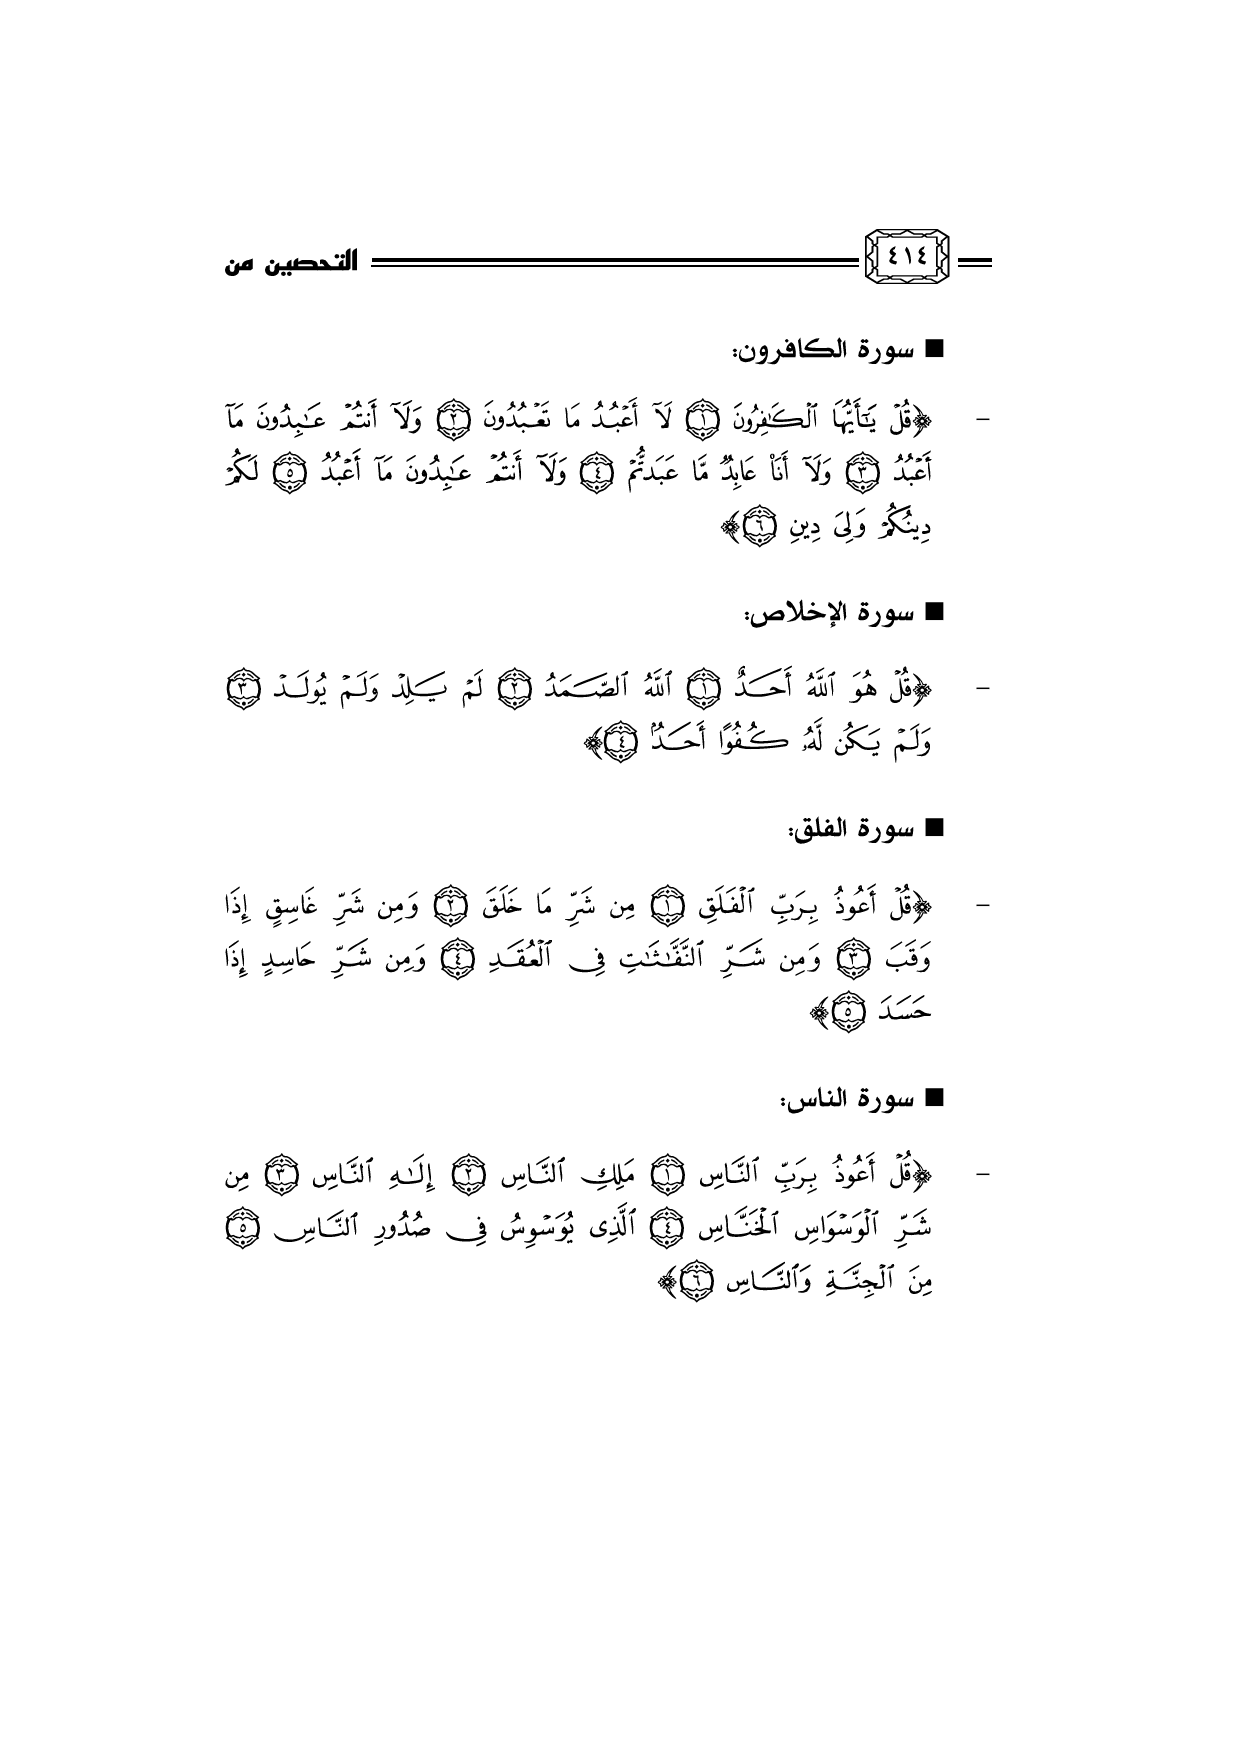 ٤١٤ التحصين من
■ سورة الكافرون:
- ﴿قُلۡ يَٰٓأَيُّهَا ٱلۡكَٰفِرُونَ ١ لَآ أَعۡبُدُ مَا تَعۡبُدُونَ ٢ وَلَآ أَنتُمۡ عَٰبِدُونَ مَآ
أَعۡبُدُ ٣ وَلَآ أَنَا۠ عَابِدٞ مَّا عَبَدتُّمۡ ٤ وَلَآ أَنتُمۡ عَٰبِدُونَ مَآ أَعۡبُدُ ٥ لَكُمۡ
دِينُكُمۡ وَلِيَ دِينِ ٦﴾
■ سورة الإخلاص:
- ﴿قُلۡ هُوَ ٱللَّهُ أَحَدٌ ١ ٱللَّهُ ٱلصَّمَدُ ٢ لَمۡ يَلِدۡ وَلَمۡ يُولَدۡ ٣
وَلَمۡ يَكُن لَّهُۥ كُفُوًا أَحَدُۢ ٤﴾
■ سورة الفلق:
- ﴿قُلۡ أَعُوذُ بِرَبِّ ٱلۡفَلَقِ ١ مِن شَرِّ مَا خَلَقَ ٢ وَمِن شَرِّ غَاسِقٍ إِذَا
وَقَبَ ٣ وَمِن شَرِّ ٱلنَّفَّٰثَٰتِ فِي ٱلۡعُقَدِ ٤ وَمِن شَرِّ حَاسِدٍ إِذَا
حَسَدَ ٥﴾
■ سورة الناس:
- ﴿قُلۡ أَعُوذُ بِرَبِّ ٱلنَّاسِ ١ مَلِكِ ٱلنَّاسِ ٢ إِلَٰهِ ٱلنَّاسِ ٣ مِن
شَرِّ ٱلۡوَسۡوَاسِ ٱلۡخَنَّاسِ ٤ ٱلَّذِي يُوَسۡوِسُ فِي صُدُورِ ٱلنَّاسِ ٥
مِنَ ٱلۡجِنَّةِ وَٱلنَّاسِ ٦﴾